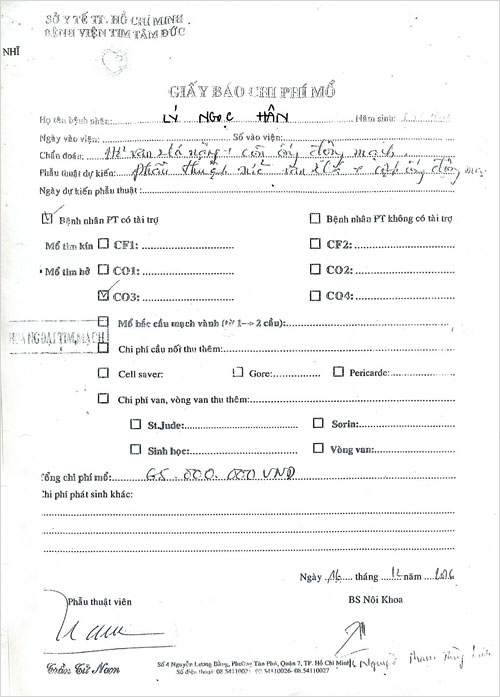 SỞ Y TẾ TP. HỒ CHÍ MINH
BỆNH VIỆN TIM TÂM ĐỨC
NHĨ
GIẤY BÁO CHI PHÍ MỔ
Họ tên bệnh nhân: LÝ NGỌC HÂN Năm sinh:
Ngày vào viện: Số vào viện:
Chẩn đoán: van 2 lá nặng + còn ống động mạch
Phẫu thuật dự kiến: phẫu thuật van 2 lá + cột ống động mạ
Ngày dự kiến phẫu thuật:
Bệnh nhân PT có tài trợ Bệnh nhân PT không có tài trợ
Mổ tim kín CF1: CF2:
Mổ tim hở CO1: CO2:
CO3: CO4:
Mổ bắc cầu mạch vành (từ 1--> 2 cầu):
KHOA NGOẠI TIM MẠCH
Chi phí cầu nối thu thêm:
Cell saver: Gore: Pericarde:
Chi phí van, vòng van thu thêm:
St.Jude: Sorin:
Sinh học: Vòng van:
Tổng chi phí mổ: 65.000.000 VNĐ
Chi phí phát sinh khác:
Ngày 16 tháng 12 năm 2016
Phẫu thuật viên BS Nội Khoa
Trần Cừ Nam Nguyễn Phạm Thùy
Số 4 Nguyễn Lương Bằng, Phường Tân Phú, Quận 7, TP. Hồ Chí Minh
Số điện thoại: 08.54110025 - 08.54110026- 08.54110027